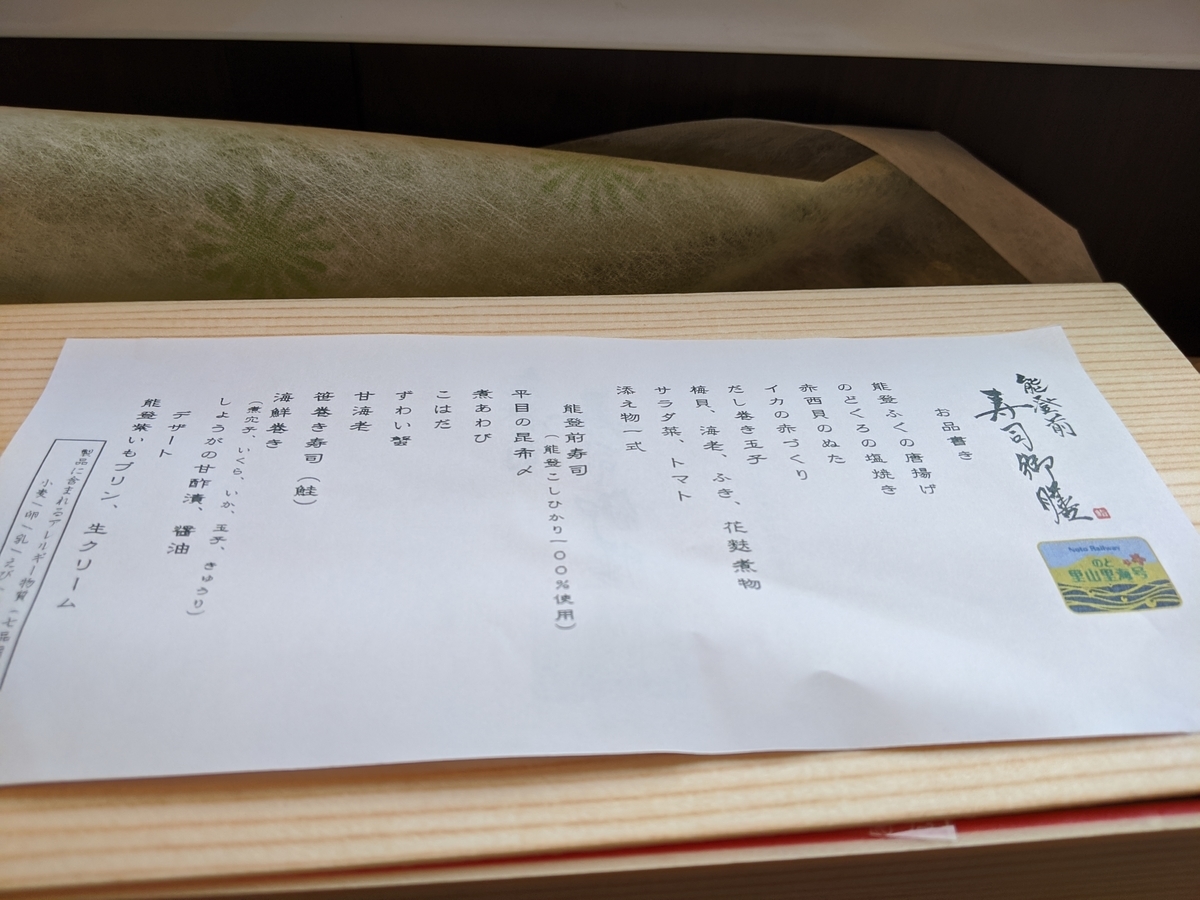 能登前
寿司御膳
Noto Railway
のと
里山里海号
お品書き
能登ふくの唐揚げ
のどくろの塩焼き
赤西貝のぬた
イカの赤づくり
だし巻き玉子
梅貝、海老、ふき、花麩煮物
サラダ菜、トマト
添え物一式
能登前寿司
(能登こしひかり一〇〇%使用)
平目の昆布〆
煮あわび
こはだ
ずわい蟹
甘海老
笹巻き寿司(鮭)
海鮮巻き
(煮穴子、いくら、いか、玉子、きゅうり)
しょうがの甘酢漬、醤油
デザート
能登紫いもプリン、生クリーム
製品に含まれるアレルギー物質(七品目
小麦/卵/乳/えび/